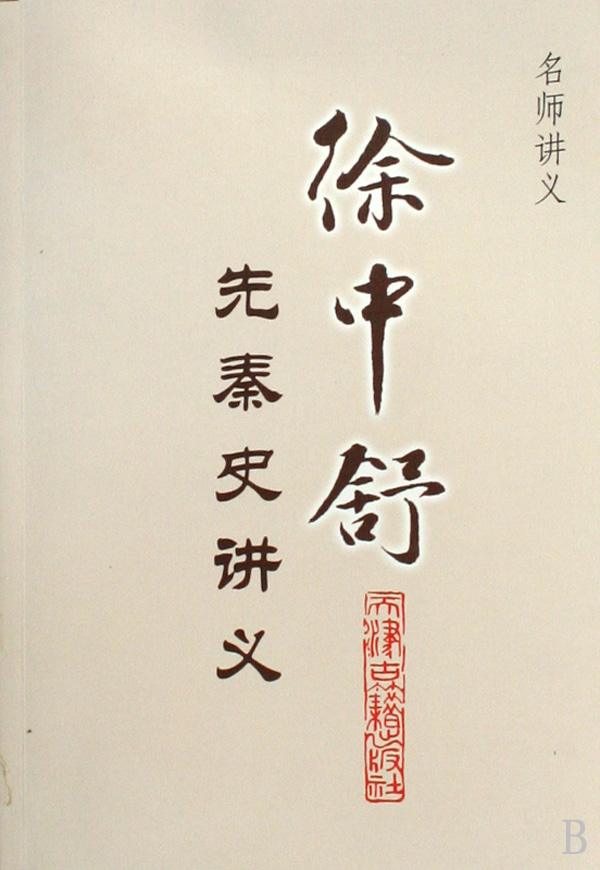 名师讲义
徐中舒
先秦史讲义
天津古籍出版社
B